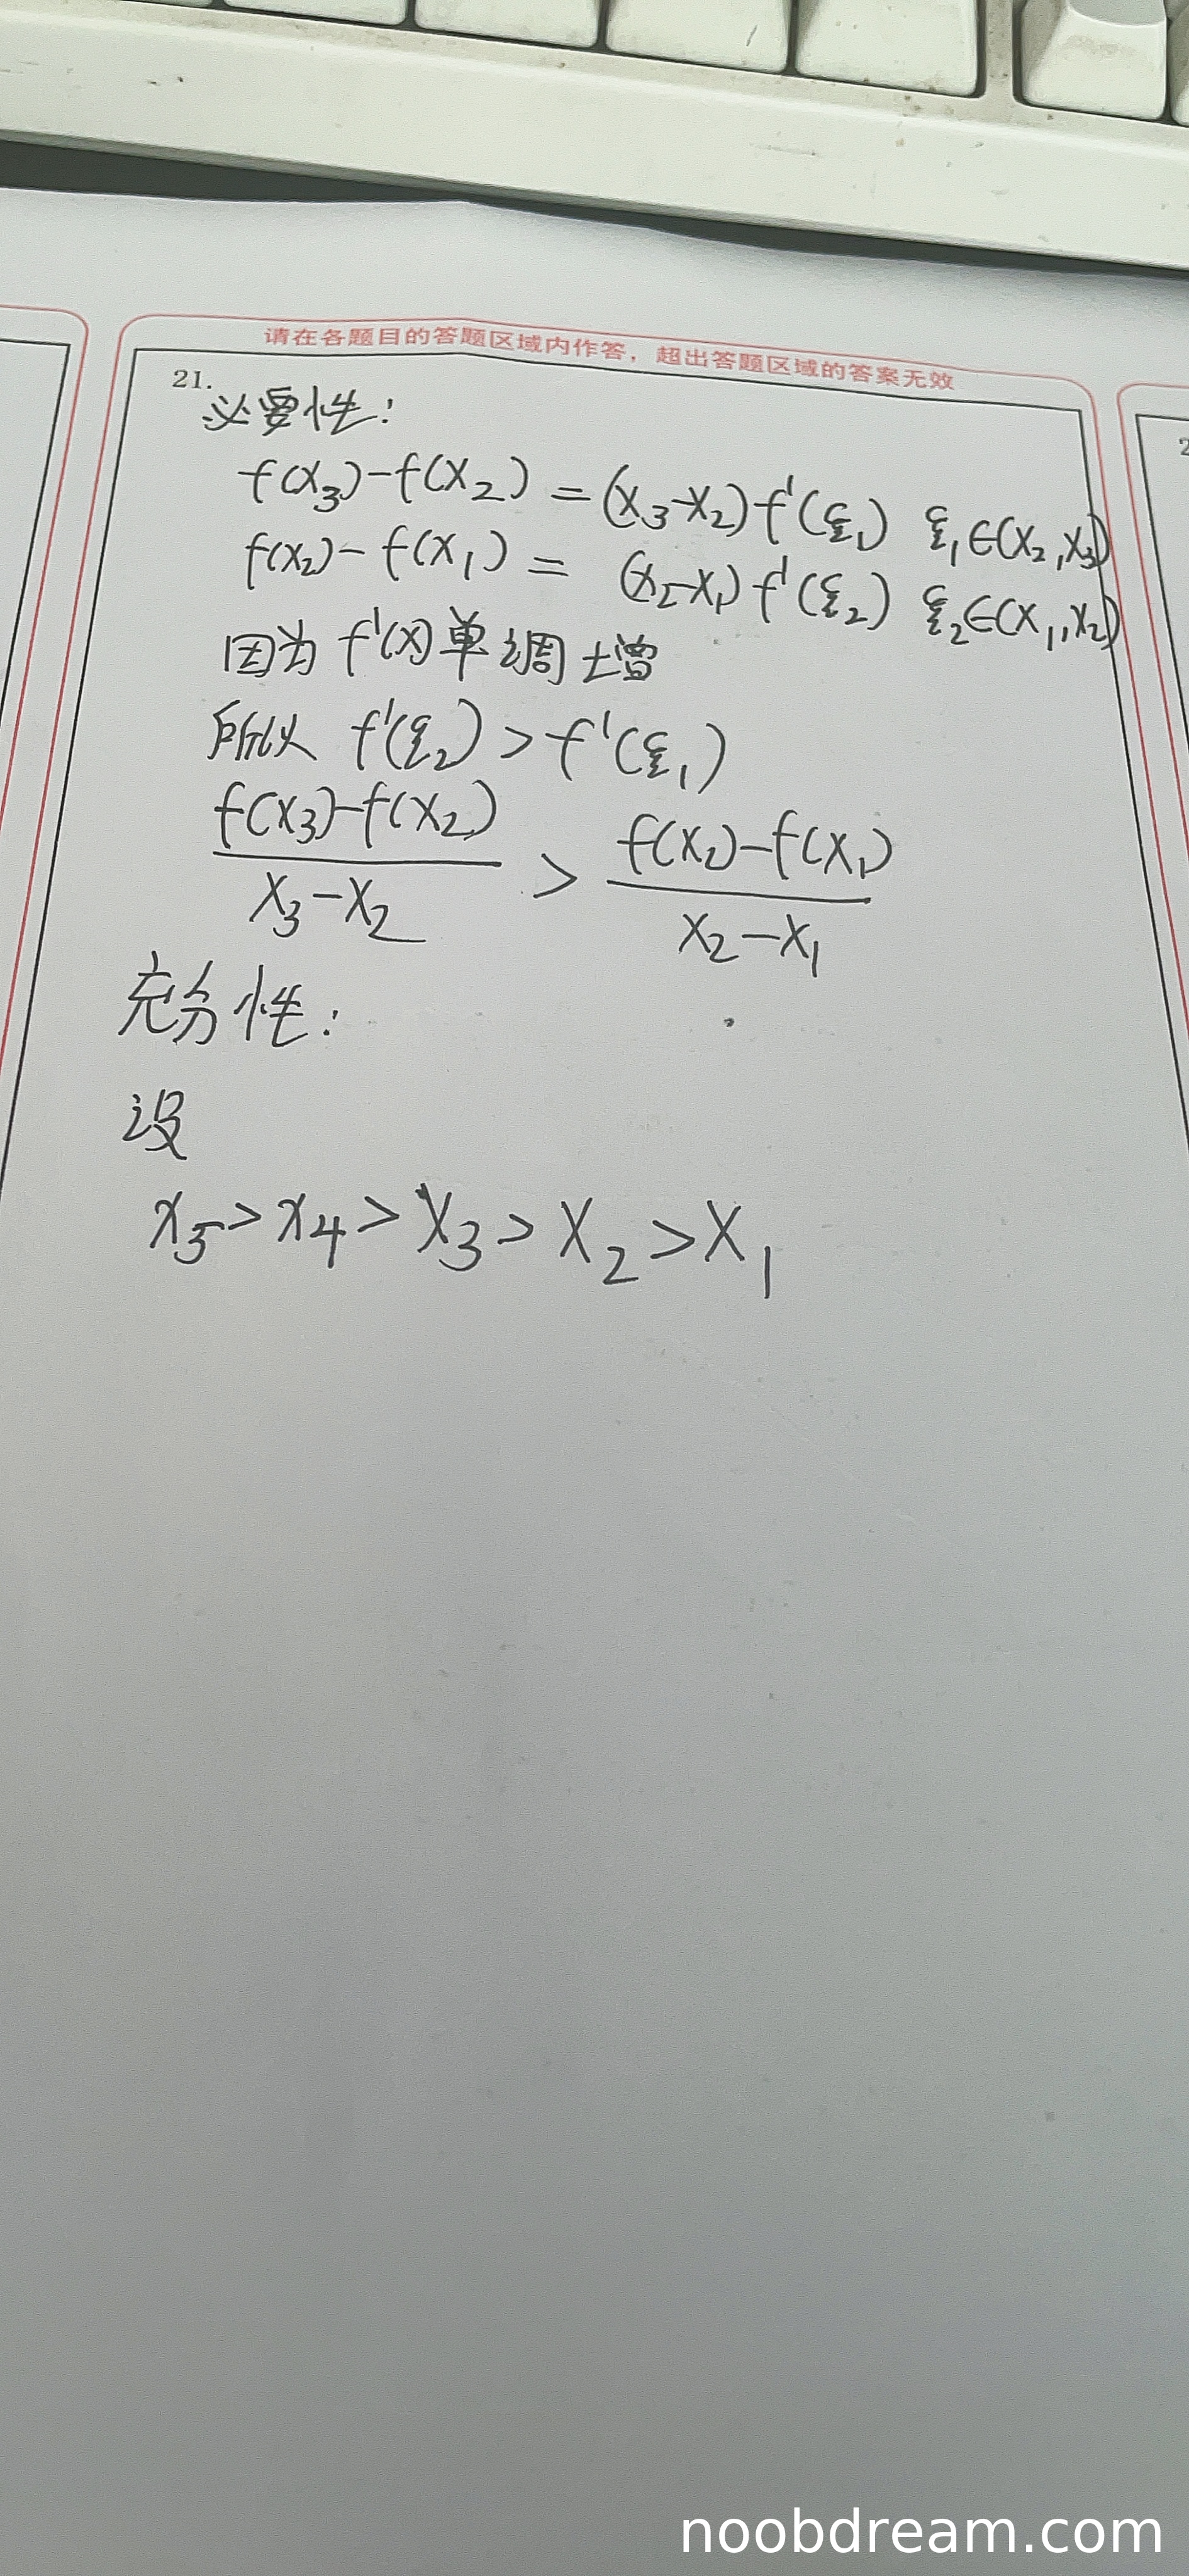 请在各题目的答题区域内作答，超出答题区域的答案无效
21.
必要性：
f(x₃)-f(x₂) = (x₃-x₂)f'(ξ₁) ξ₁∈(x₂,x₃)
f(x₂)-f(x₁) = (x₂-x₁)f'(ξ₂) ξ₂∈(x₁,x₂)
因为 f'(x)单调增
所以 f'(ξ₂)>f'(ξ₁)
f(x₃)-f(x₂) / x₃-x₂ > f(x₂)-f(x₁) / x₂-x₁
充分性：
设
x₅>x₄>x₃>x₂>x₁
2
noobdream.com